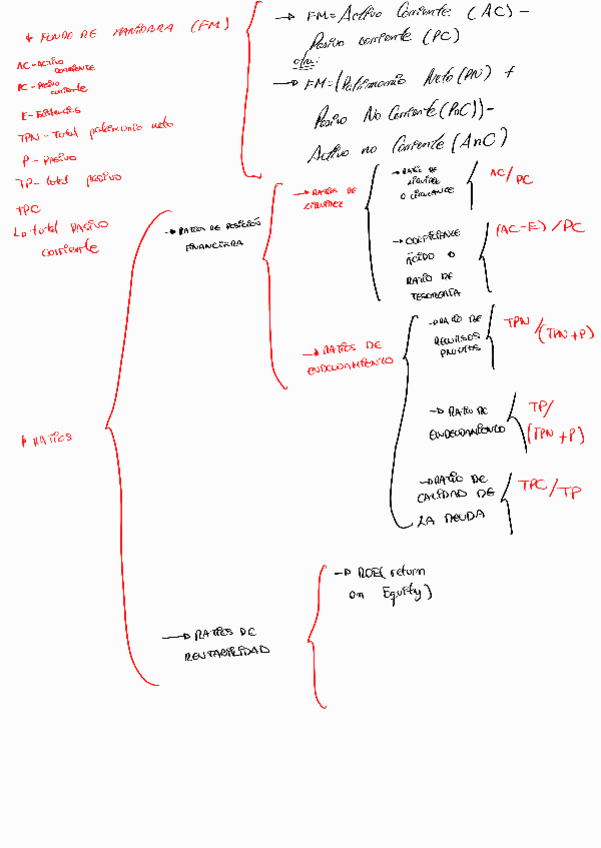 * FONDO DE MANIOBRA (FM)
→ FM = Activo Corriente (AC) -
Pasivo corriente (PC)
→ FM = (Patrimonio Neto (PN) +
Pasivo No Corriente (PnC)) -
Activo no Corriente (AnC)
AC - ACTIVO
CORRIENTE
PC - PASIVO
corriente
E - Existencias
TPN - Total patrimonio neto
P - PASIVO
TP - total pasivo
TPC
↳ total pasivo
corriente
RATIOS
→ RATIOS DE POSICIÓN
FINANCIERA
→ RATIOS DE
LIQUIDEZ
→ RATIO DE
LIQUIDEZ
O CIRCULANTE
AC/PC
→ COEFICIENTE
ÁCIDO O
RATIO DE
TESORERÍA
(AC-E)/PC
→ RATIOS DE
ENDEUDAMIENTO
→ RATIO DE
RECURSOS
PROPIOS
TPN/(TPN+P)
→ RATIO DE
ENDEUDAMIENTO
TP/
(TPN+P)
→ RATIO DE
CALIDAD DE
LA DEUDA
TPC/TP
→ RATIOS DE
RENTABILIDAD
→ ROE (return
on Equity)